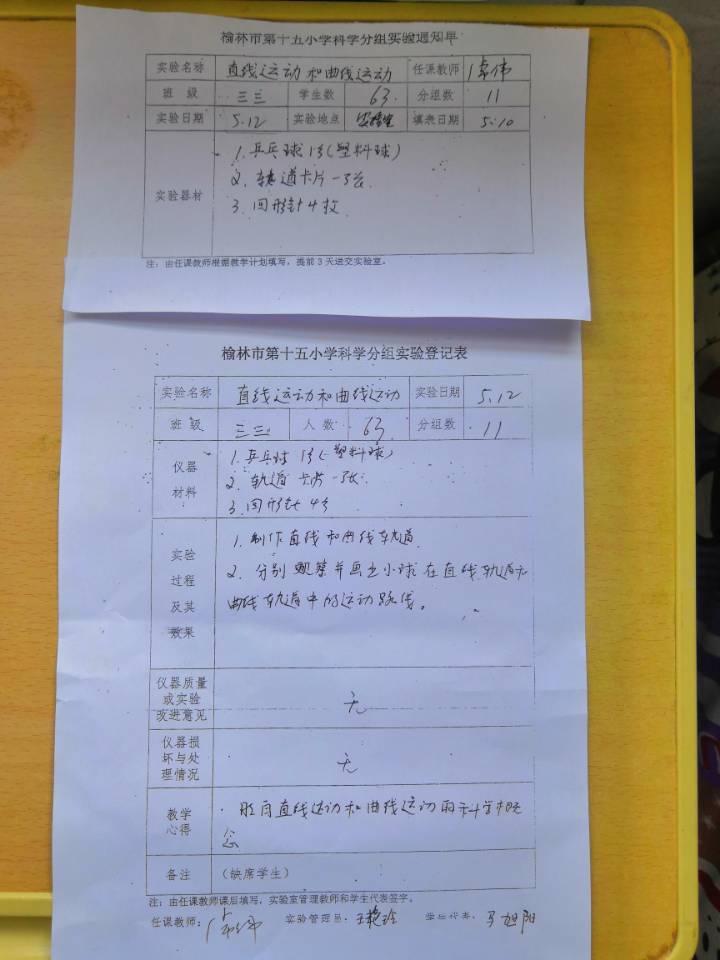 榆林市第十五小学科学分组实验通知单
实验名称 直线运动和曲线运动 任课教师
班 级 三三 学生数 63 分组数 11
实验日期 5.12 实验地点 实验室 填表日期 5.10
实验器材
1. 乒乓球1个(塑料球)
2. 轨道卡片一张
3. 回形针4枚
注：由任课教师根据教学计划填写，提前3天送交实验室。
榆林市第十五小学科学分组实验登记表
实验名称 直线运动和曲线运动 实验日期 5.12
班 级 三三 人 数 63 分组数 11
仪器材料
1. 乒乓球 1个(塑料球)
2. 轨道卡片一张
3. 回形针 4个
实验过程及其效果
1. 制作直线和曲线轨道
2. 分别观察并画出小球在直线轨道和
曲线轨道中的运动路线。
仪器质量或实验改进意见 无
仪器损坏与处理情况 无
教学心得
明白直线运动和曲线运动的科学概
念
备注 (缺席学生)
注：由任课教师课后填写，实验室管理教师和学生代表签字。
任课教师： 实验管理员： 学生代表： 马旭阳